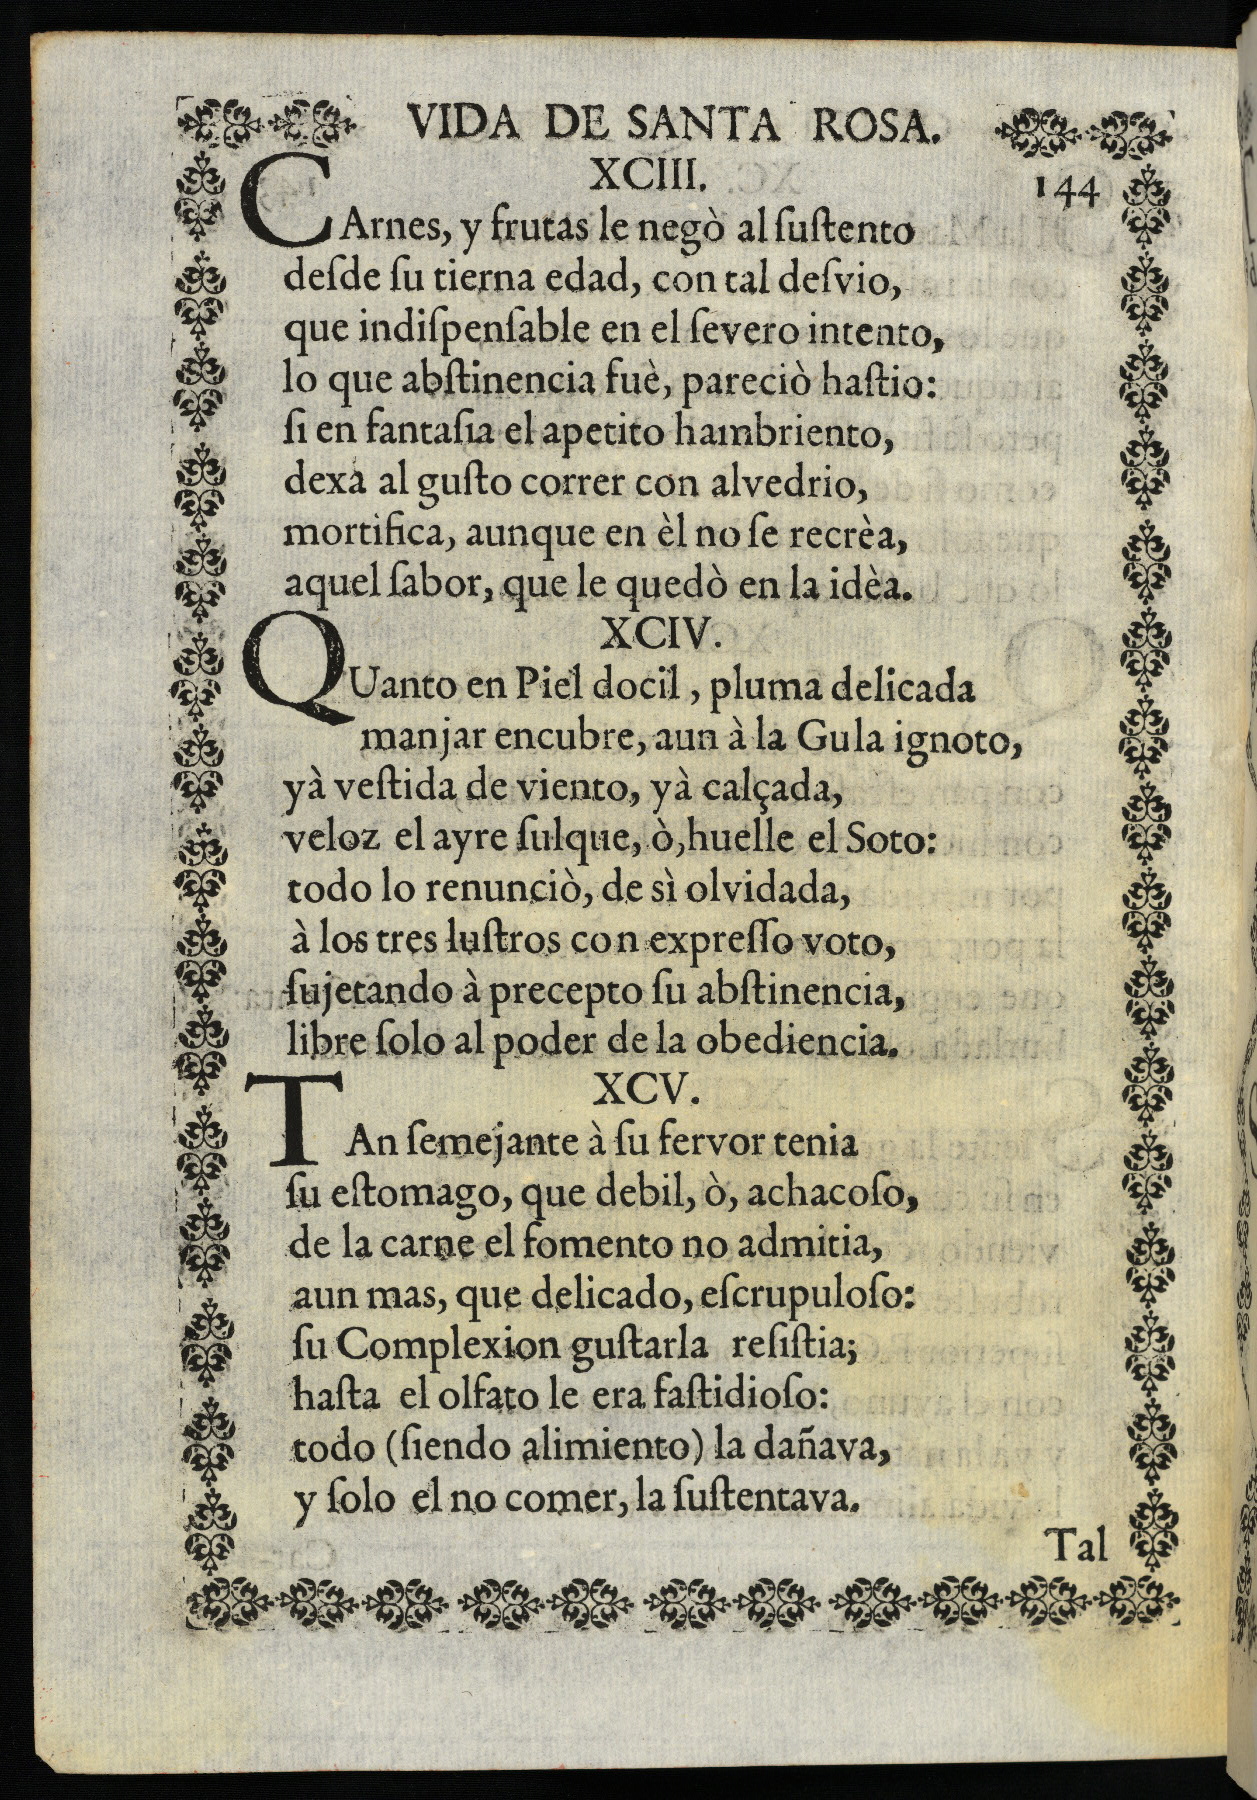 VIDA DE SANTA ROSA.
XCIII.
144
CArnes, y frutas le negò al ſuſtento
deſde ſu tierna edad, con tal deſvio,
que indiſpenſable en el ſevero intento,
lo que abſtinencia fuè, pareciò haſtio:
ſi en fantaſia el apetito hambriento,
dexa al guſto correr con alvedrio,
mortifica, aunque en èl no ſe recrèa,
aquel ſabor, que le quedò en la idèa.
XCIV.
QUanto en Piel docil, pluma delicada
manjar encubre, aun à la Gula ignoto,
yà veſtida de viento, yà calçada,
veloz el ayre ſulque, ò, huelle el Soto:
todo lo renunciò, de sì olvidada,
à los tres luſtros con expreſſo voto,
ſujetando à precepto ſu abſtinencia,
libre ſolo al poder de la obediencia.
XCV.
TAn ſemejante à ſu fervor tenia
ſu eſtomago, que debil, ò, achacoſo,
de la carne el fomento no admitia,
aun mas, que delicado, eſcrupuloſo:
ſu Complexion guſtarla reſiſtia;
haſta el olfato le era faſtidioſo:
todo (ſiendo alimiento) la dañava,
y ſolo el no comer, la ſuſtentava.
Tal